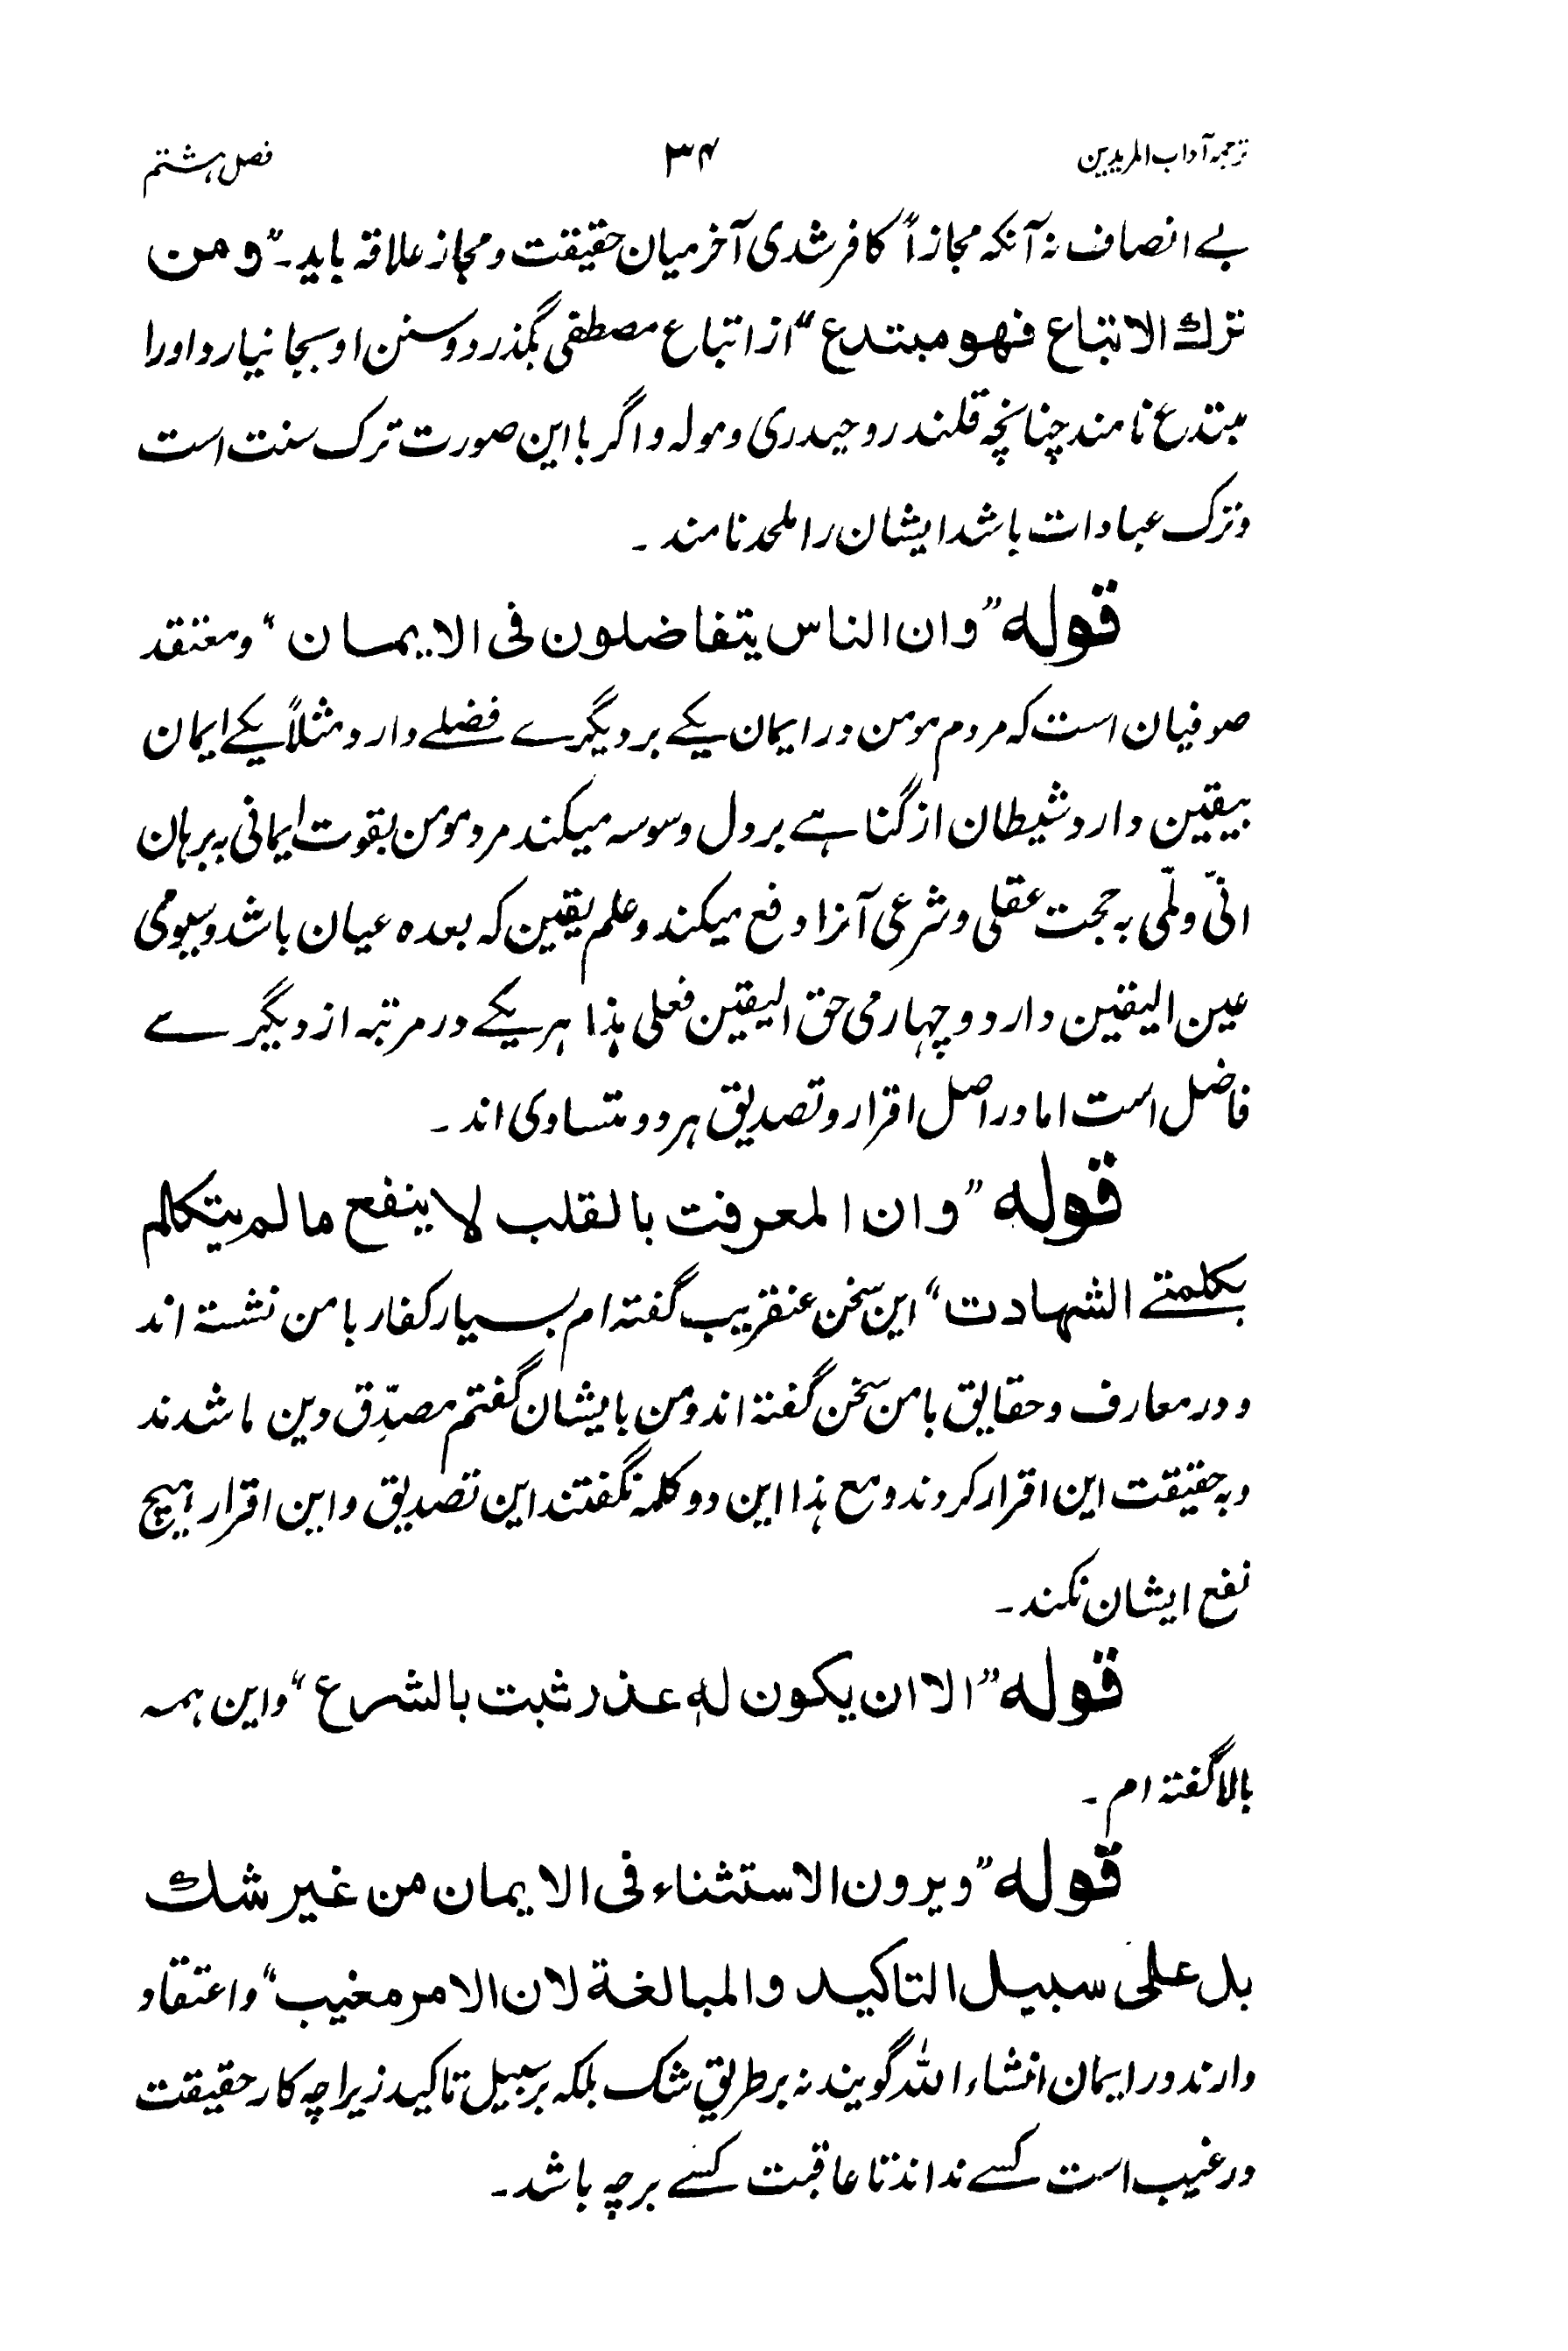 ترجمہ آداب المریدین ۳۴ فصل ہشتم
بے انصاف نہ آنکہ مجازاً کافر شدی آخر میان حقیقت و مجاز علاقہ باید۔ "و من
ترك الاتباع فهو مبتدع" از اتباع مصطفی بگذرد و سنن او بجا نیارد او را
مبتدع نامند چنانچہ قلندر و حیدری و مولہ و اگر با این صورت ترک سنت است
و ترک عبادات باشد ایشان را ملحد نامند۔
قوله "وان الناس يتفاضلون فی الايمان" و معتقد
صوفیان است کہ مردم مومن در ایمان یکے بر دیگرے فضلے دارد مثلاً یکے ایمان
بیقین دارد شیطان از گناہے بر دل وسوسہ میکند مرد مومن بقوت ایمانی بہ برہان
انّی و لمّی بہ حجت عقلی و شرعی آنرا دفع میکند و علم یقین کہ بعدہ عیان باشد و سیومی
عین الیقین دارد و چہارمی حق الیقین فعلی ہذا ہر یکے در مرتبہ از دیگرے
فاضل است اما در اصل اقرار و تصدیق ہر دو متساوی اند۔
قوله "وان المعرفت بالقلب لا ينفع مالم يتكلم
بكلمتے الشهادت" این سخن عنقریب گفتہ ام بسیار کفار با من نشستہ اند
و در معارف و حقایق با من سخن گفتہ اند و من با یشان گفتم مصدِّق دین ما شدند
و بہ حقیقت این اقرار کردند و مع ہذا این دو کلمہ نگفتند این تصدیق و این اقرار ہیچ
نفع ایشان نکند۔
قوله "الا ان يكون لهٖ عذر ثبت بالشرع" و این ہمہ
بالا گفتہ ام۔
قوله "ويرون الاستثناء فی الايمان من غير شك
بل علی سبيل التاكيد والمبالغة لان الامر مغيب" و اعتقاد
دارند در ایمان انشاء اللہ گویند نہ بر طریق شک بلکہ بر سبیل تاکید زیرا چہ کار حقیقت
در غیب است کسے نداند تا عاقبت کسے بر چہ باشد۔